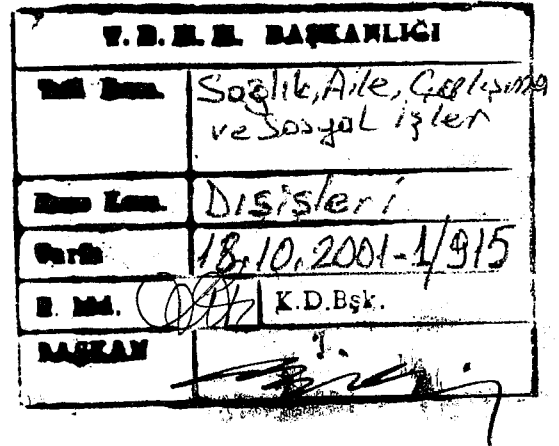 T. B. M. M. BAŞKANLIĞI
Tali Kom. Sağlık, Aile, Çalışma
ve Sosyal İşler
Esas Kom. Dışişleri
Tarih 18.10.2001-1/915
K. Md. K.D.Bşk.
BAŞKAN